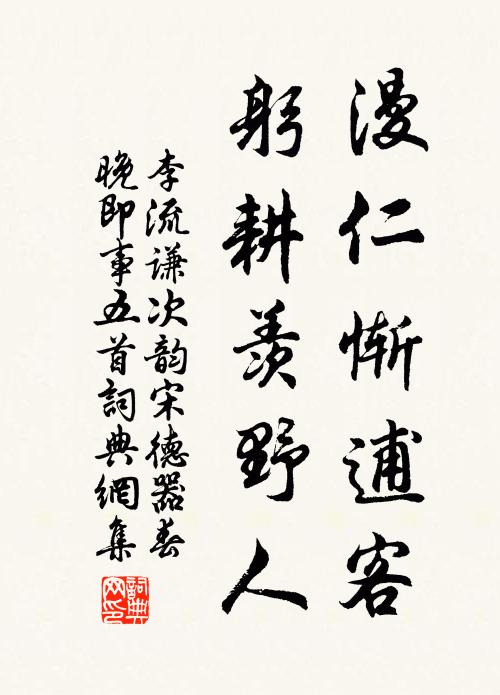 漫仁慚逋客
躬耕羨野人
李流謙次韵宋德器春
晚即事五首詞典網集
詞典
网印